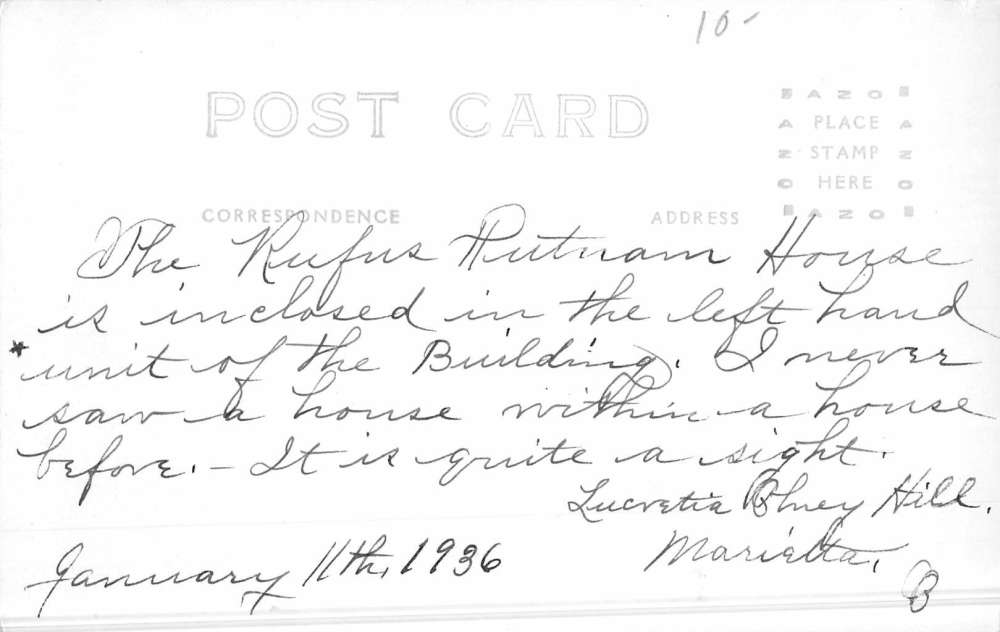 10-
POST CARD
AZO
A PLACE A
Z STAMP Z
O HERE O
AZO
CORRESPONDENCE ADDRESS
The Rufus Putnam House
is inclosed in the left hand
* unit of the Building. I never
saw a house within a house
before. - It is quite a sight.
Lucretia Hill.
January 11th, 1936 Marietta,